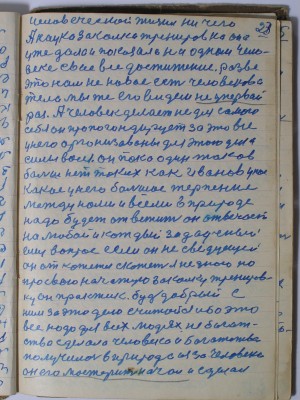 человеческой жизни ни чего
23
А наука закалка тренировка она
уже дала и показала на одном чело-
веке свое все достижение. разве
это нам не новое есть человек ова
тело мы же его видем не первай
раз. А человек делает не для самого
себя он пропогондирует за это все
у него организованы для этого дела
силы воли. он пока один таков
балши нет таких как Иванов учи
какое у него болшое терпение
между нами и всеми в природе
надо будет ответит он отвечает
на любой и каждый зададенай
ему вопрос если он не сведующей
он от хотеня скажет я не много но
просваи на чатую закалку трениров-
ку он практик. будь добрый с
ним за это дело считатся и во это
все надо для всех людях не богат-
ство сделала человека и богатства
получилос в природе из за человека
он его мастерит начал и сделал